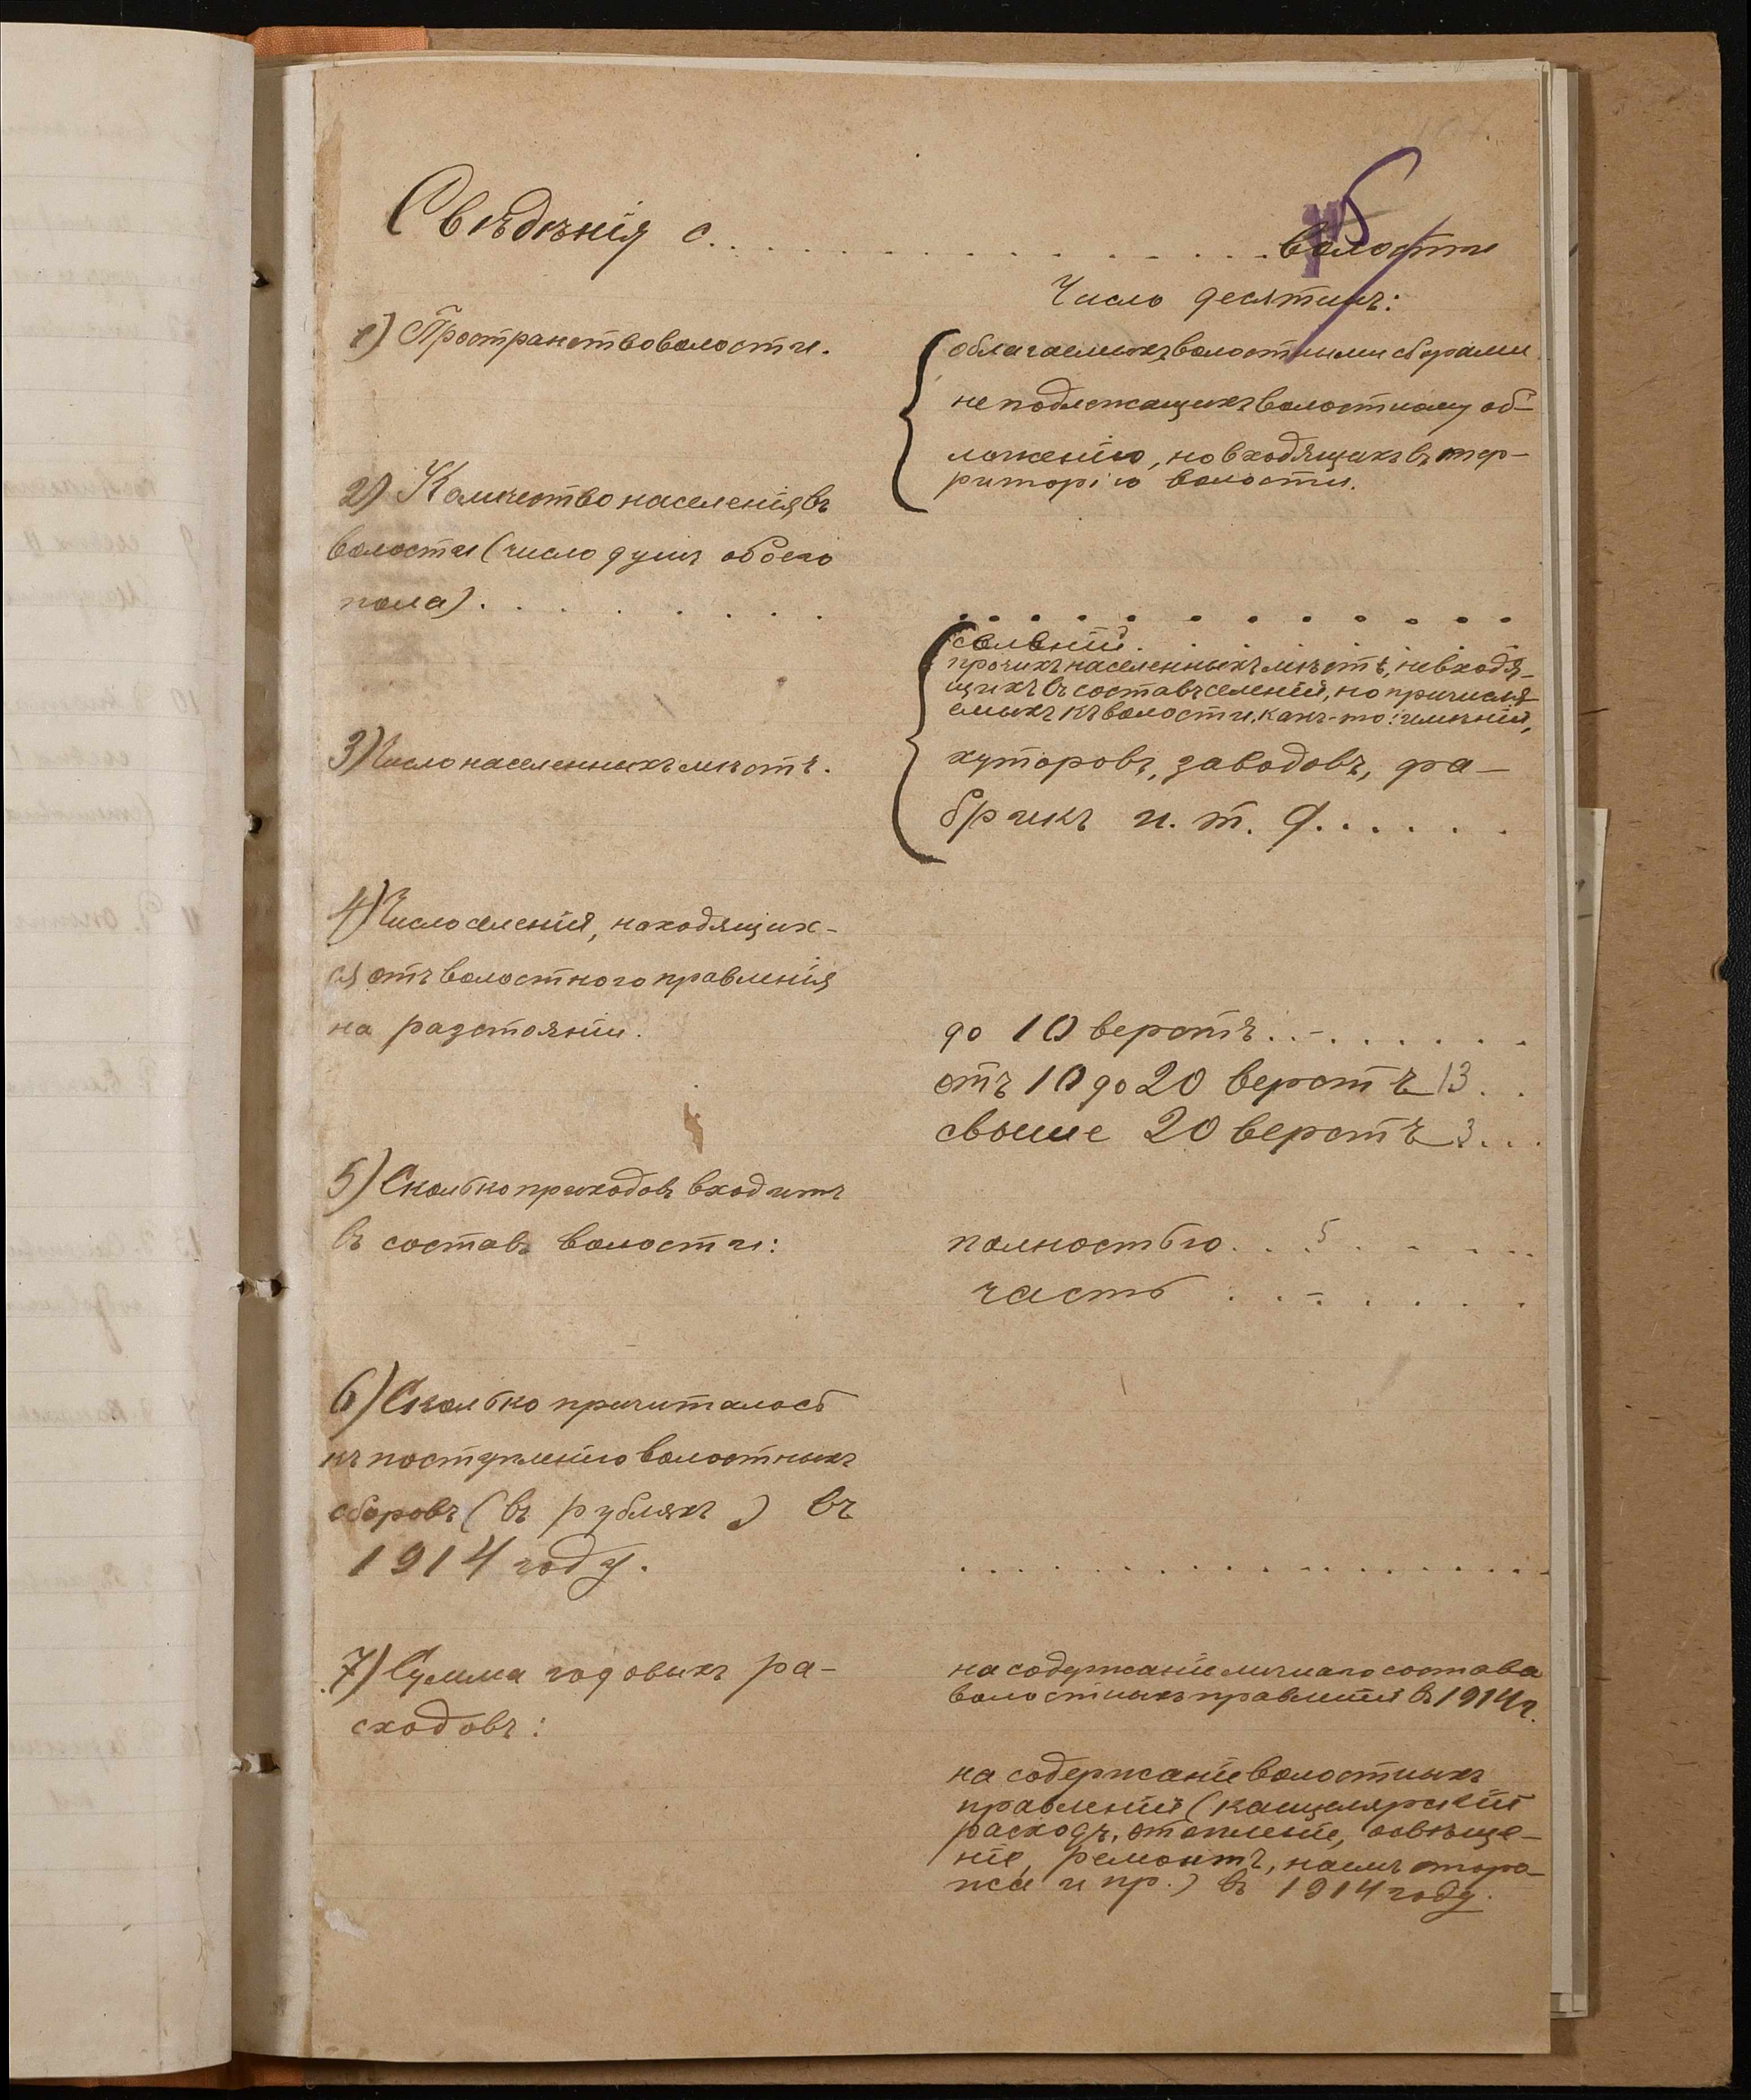 Свѣдѣнія о . . . . . . . . . . . . . волости
Число десятинъ:
1) Пространство волости.
облагаемыхъ волостными сборами
не подлежащихъ волостному об-
ложенію, но входящихъ въ тер-
риторію волости.
2) Количество населенія въ
волости (число душъ обоего
пола) . . . . . . .
. . . . . . . . . . . . .
3) Число населенныхъ мѣстъ.
селеній . . . . . .
прочихъ населенныхъ мѣстъ, не входя-
щихъ въ составъ селеній, но причисля-
емыхъ къ волости, какъ-то: имѣній,
хуторовъ, заводовъ, фа-
брикъ и. т. д. . . . . .
4) Число селеній, находящих-
ся отъ волостного правленія
на разстояніи.
до 10 верстъ . . - . . . . . .
отъ 10 до 20 верстъ 13 . .
свыше 20 верстъ 3 . . .
5) Сколько приходовъ входитъ
въ составъ волости:
полностью . . 5 . . . . .
часть . . - . . . . .
6) Сколько причиталось
къ поступленію волостныхъ
сборовъ (въ рубляхъ) въ
1914 году.
. . . . . . . . . . . . . . . . . .
7) Сумма годовыхъ ра-
сходовъ:
на содержаніе личнаго состава
волостныхъ правленій въ 1914 г.
на содержаніе волостныхъ
правленій (канцелярскій
расходъ, отопленіе, освѣще-
ніе, ремонтъ, наемъ сторо-
жа и пр.) въ 1914 году.